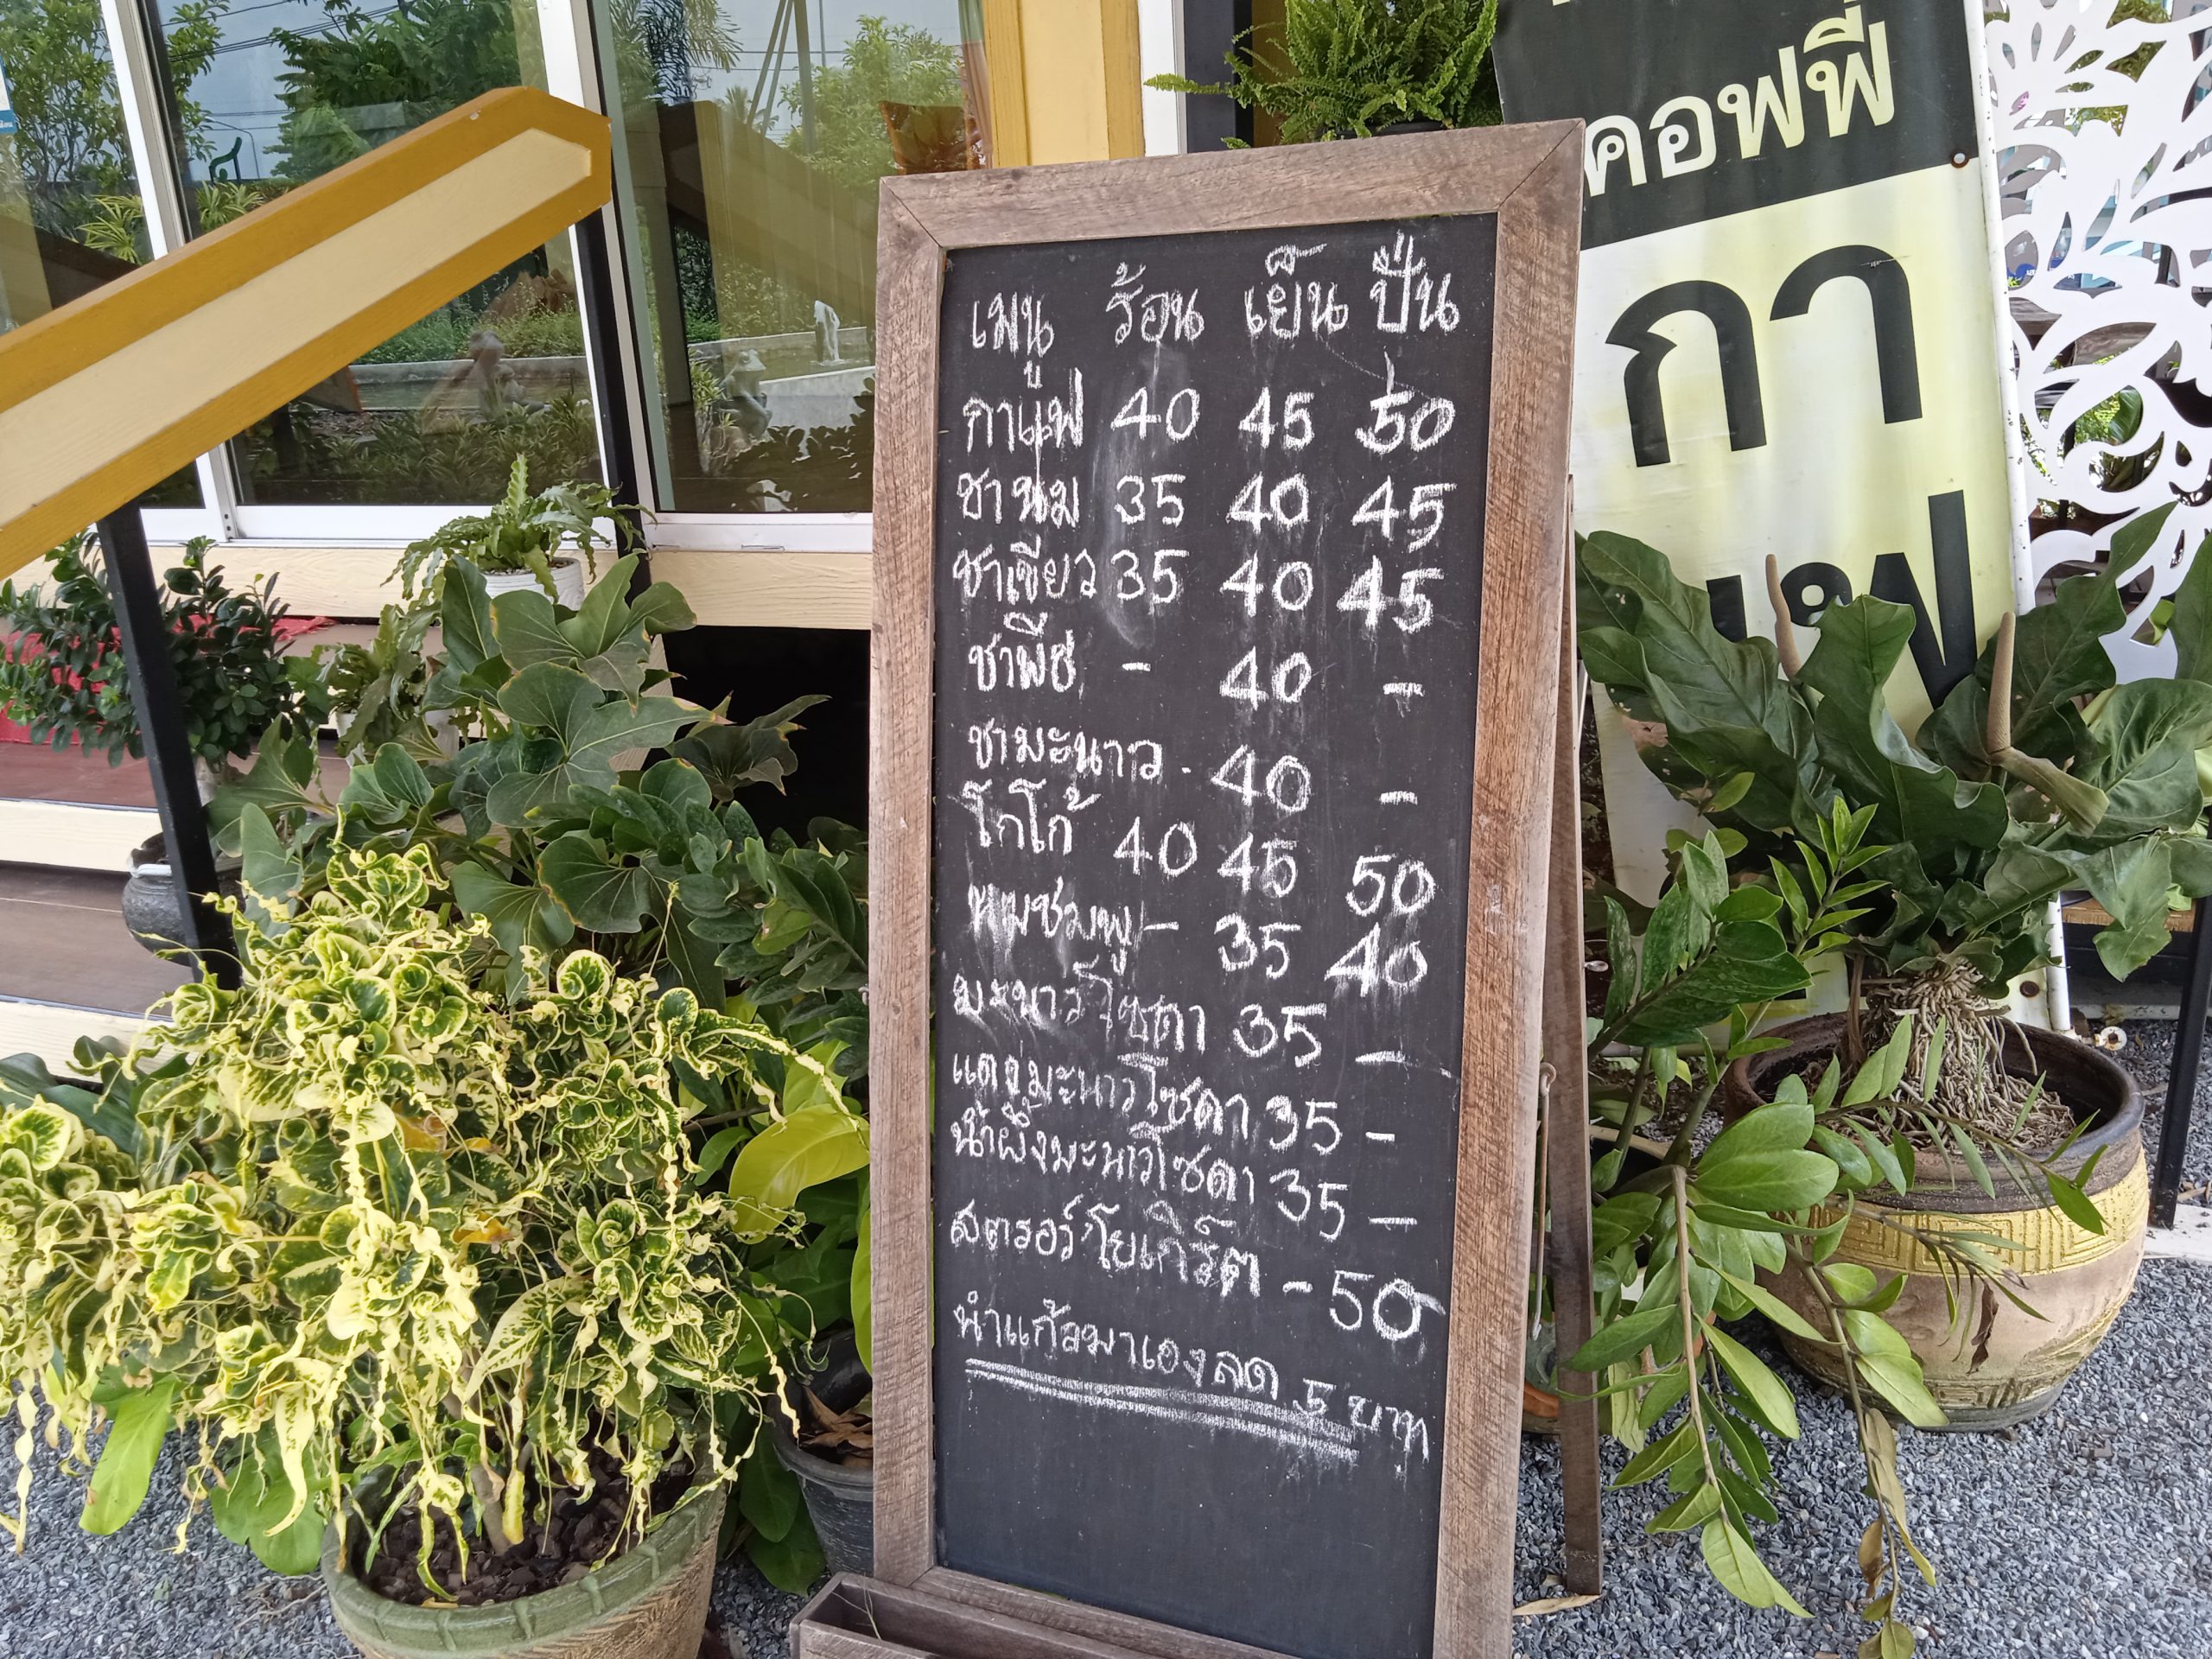 คอฟฟี่
กา
แฟ
เมนู ร้อน เย็น ปั่น
กาแฟ 40 45 50
ชานม 35 40 45
ชาเขียว 35 40 45
ชาพีช - 40 -
ชามะนาว - 40 -
โกโก้ 40 45 50
นมชมพู - 35 40
มะนาวโซดา 35 -
แดงมะนาวโซดา 35 -
น้ำผึ้งมะนาวโซดา 35 -
สตรอร์โยเกิร์ต - 50
นำแก้วมาเองลด 5 บาท